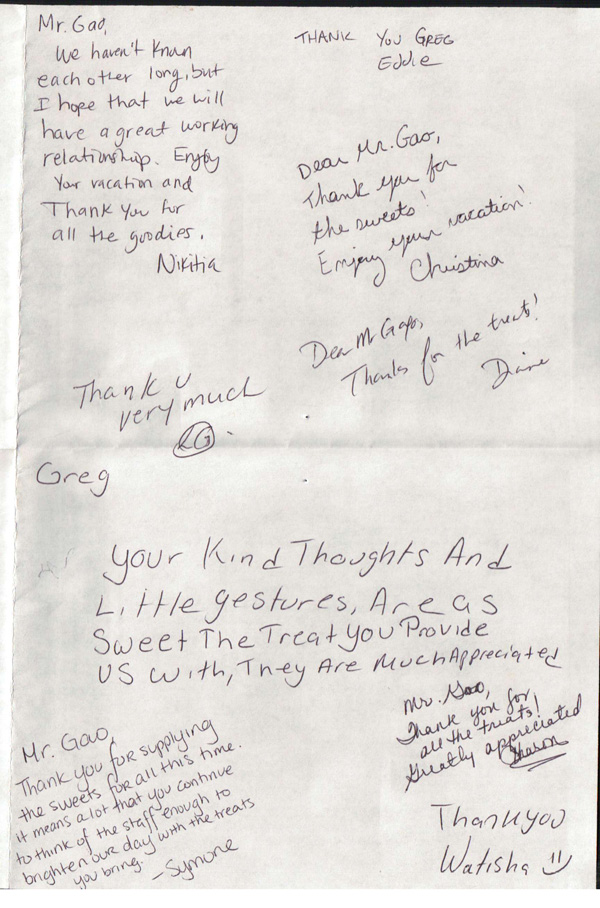 Mr. Gao,
We haven't known
each other long, but
I hope that we will
have a great working
relationship. Enjoy
Your vacation and
Thank You for
all the goodies.
Nikitia
THANK YOU GREG
Eddie
Dear Mr. Gao,
Thank you for
the sweets!
Enjoy your vacation!
Christina
Dear Mr Gao,
Thanks for the treats!
Diane
Thank u
very much
LG.
Greg
Your Kind Thoughts And
Little gestures, Are as
Sweet The Treat You Provide
US with, They Are Much Appreciated
Mr. Gao,
Thank you for supplying
the sweets for all this time.
it means a lot that you continue
to think of the staff enough to
brighten our day with the treats
you bring. - Symone
Mr. Gao,
Thank you for
all the treats!
Greatly appreciated
Sharon
Thank you
Watisha